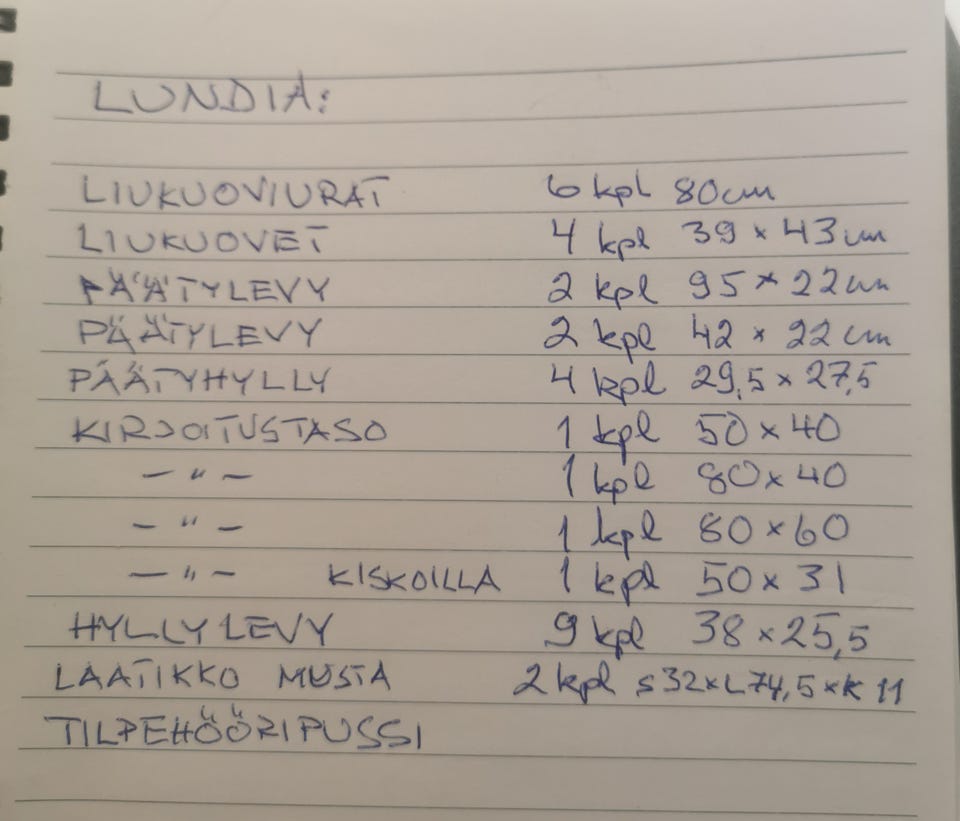 LUNDIA:
LIUKUOVIURAT 6 kpl 80cm
LIUKUOVET 4 kpl 39 x 43 cm
PÄÄTYLEVY 2 kpl 95 x 22 cm
PÄÄTYLEVY 2 kpl 42 x 22 cm
PÄÄTYHYLLY 4 kpl 29,5 x 27,5
KIRJOITUSTASO 1 kpl 50 x 40
— " — 1 kpl 80 x 40
— " — 1 kpl 80 x 60
— " — KISKOILLA 1 kpl 50 x 31
HYLLYLEVY 9 kpl 38 x 25,5
LAATIKKO MUSTA 2 kpl S32 x L74,5 x K 11
TILPEHÖÖRIPUSSI